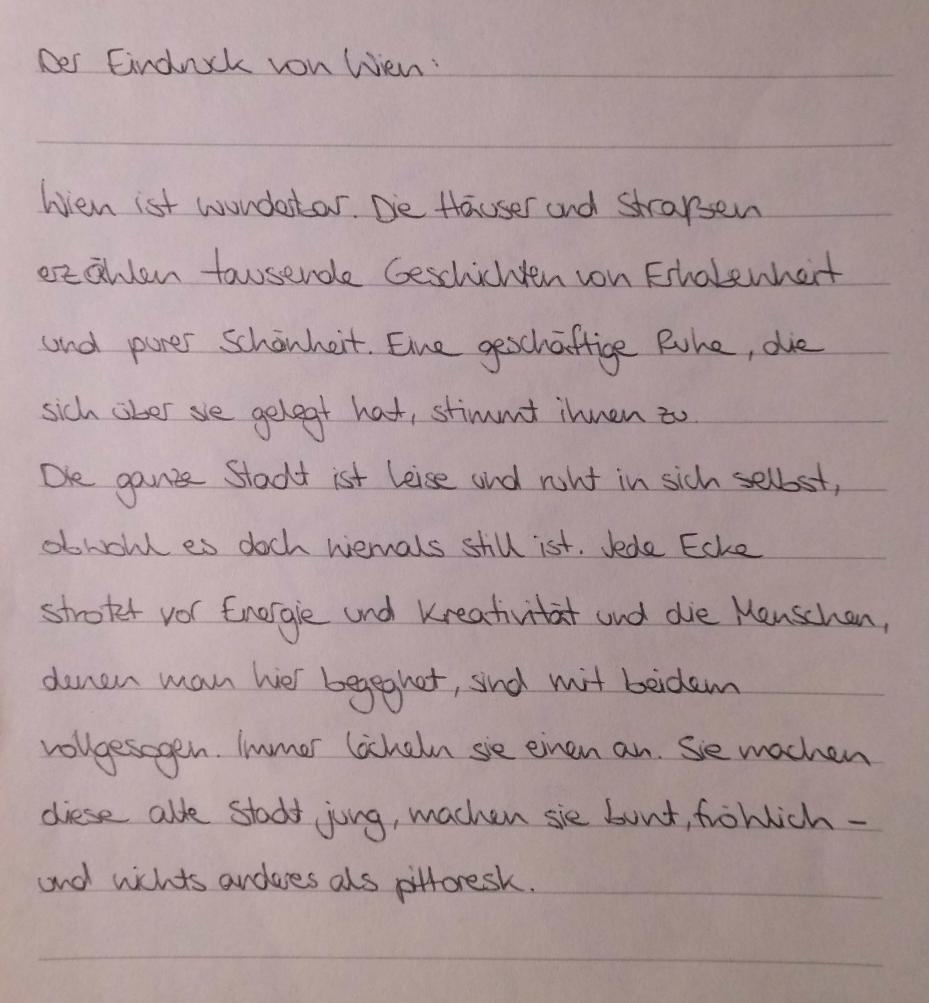 Der Eindruck von Wien:
Wien ist wunderbar. Die Häuser und Straßen
erzählen tausende Geschichten von Erhabenheit
und purer Schönheit. Eine geschäftige Ruhe, die
sich über sie gelegt hat, stimmt ihnen zu.
Die ganze Stadt ist leise und ruht in sich selbst,
obwohl es doch niemals still ist. Jede Ecke
strotzt vor Energie und Kreativität und die Menschen,
denen man hier begegnet, sind mit beidem
vollgesogen. Immer lächeln sie einen an. Sie machen
diese alte Stadt jung, machen sie bunt, fröhlich –
und nichts anderes als pittoresk.